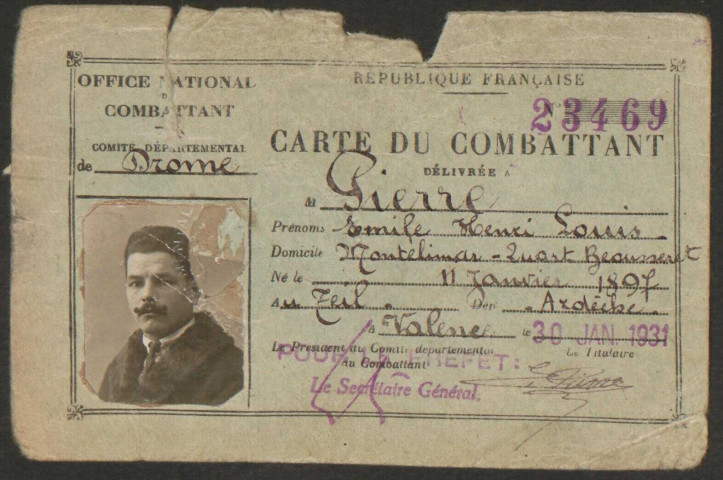 OFFICE NATIONAL
DU
COMBATTANT
COMITÉ DÉPARTEMENTAL
de Drome
RÉPUBLIQUE FRANÇAISE
N° 23469
CARTE DU COMBATTANT
DÉLIVRÉE A
M Pierre
Prénoms Emile Henri Louis
Domicile Montélimar - Quart Beausseret
Né le 11 Janvier 1897
Au Teil. Dep' Ardèche.
A Valence le 30 JAN. 1931
Le Président du Comité départemental
du Combattant
Le Titulaire
POUR LE PREFET:
Le Secrétaire Général.